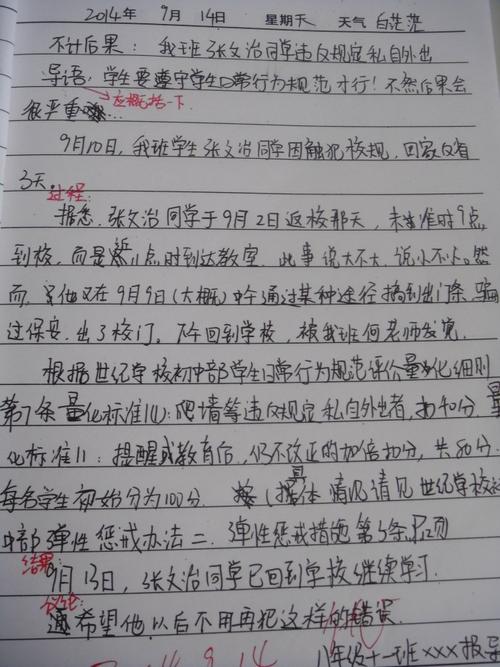 2014年 9月 14日 星期天 天气 白茫茫
不计后果：我班张文治同学违反规定私自外出
导语：学生要遵守学生日常行为规范才行！不然后果会
应概括一下
很严重…
9月10日，我班学生张文治同学因触犯校规，回家反省
3天。
过程：
据悉，张文治同学于9月2日返校那天，未准时9点
到校，而是近11点时到达教室。此事说大不大，说小不小。然
而，他又在9月9日（大概）中午通过某种途径搞到出门条，骗
过保安，出了校门。下午回到学校，被我班何老师发觉。
根据世纪学校初中部学生日常行为规范评价量化细则
第7条量化标准10：爬墙等违反规定私自外出者，扣40分，量
化标准11：提醒或教育后，仍不改正的加倍扣分，共80分。
每名学生初始分为100分。（具体情况请见世纪学校初
中部弹性惩戒办法二、弹性惩戒措施第3条P12页
结果：
9月13日，张文治同学已回到学校继续学习。
议论：
希望他以后不用再犯这样的错误。
八年级十一班xxx报导
9.14